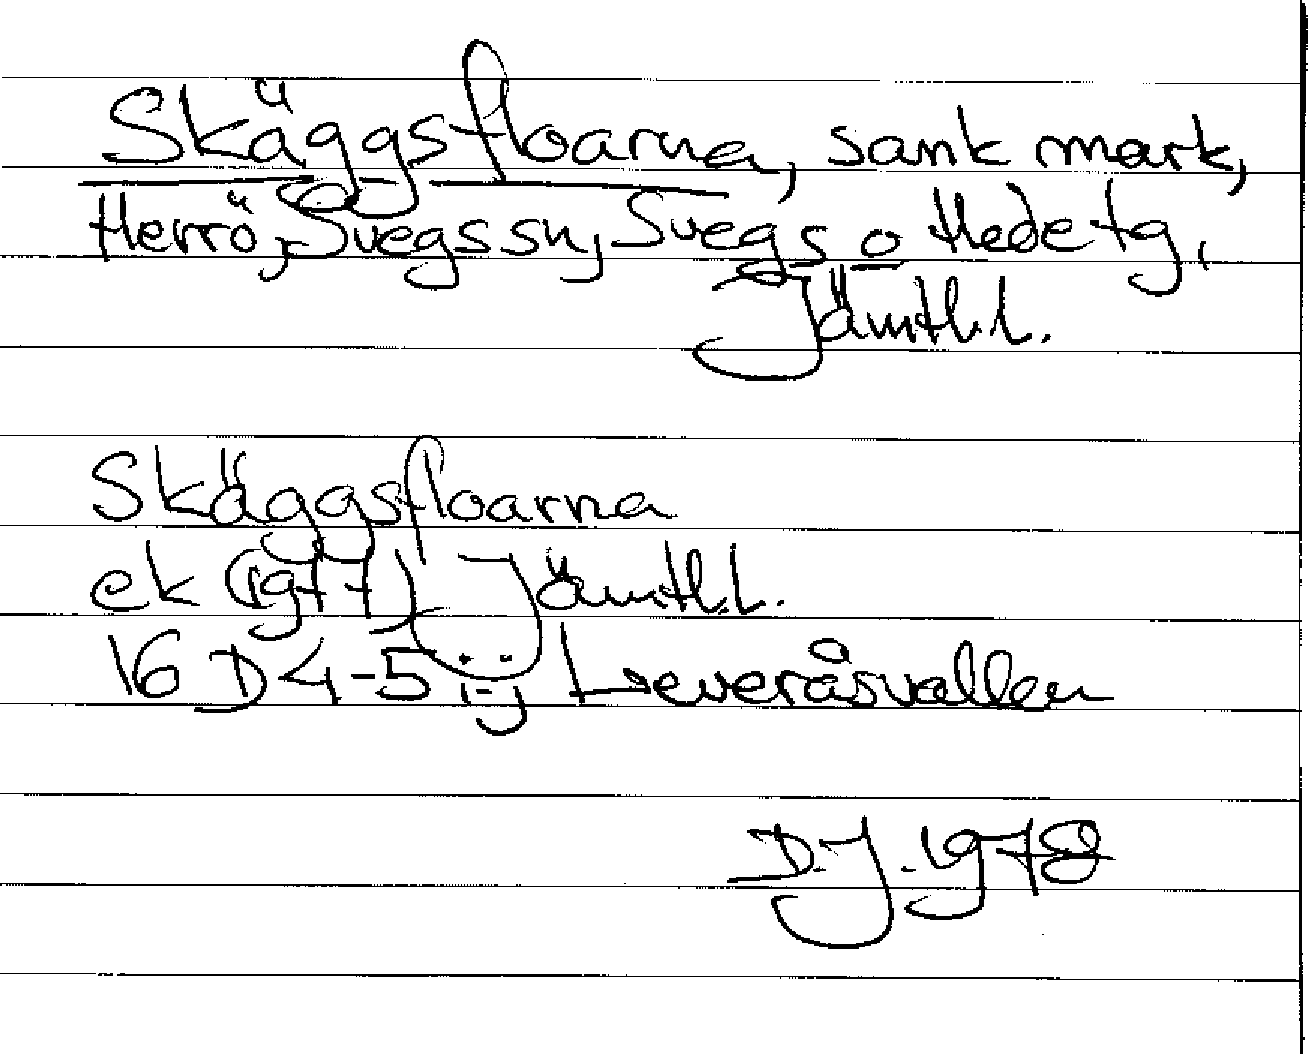 Skäggsfloarna, sank mark,
Herrö, Svegs sn, Svegs o Hede tg,
Jämtl.l.
Skäggsfloarna
ek (rgt f) Jämtl.l.
16 D 4-5 i-j Leveråsvallen
D.J. 1978